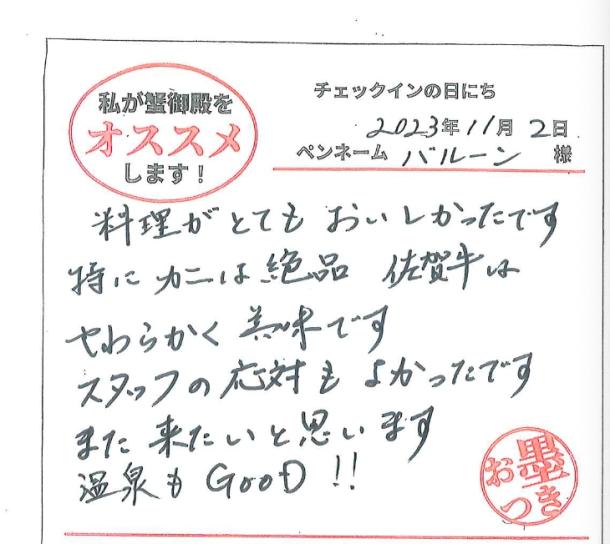 私が蟹御殿を
オススメ
します！
チェックインの日にち
2023年11月2日
ペンネーム バルーン 様
料理がとてもおいしかったです
特にカニは絶品 佐賀牛は
やわらかく美味です
スタッフの応対もよかったです
また来たいと思います
温泉もGOOD!!
お墨
つき